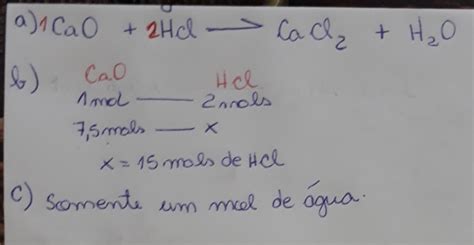 a) 1CaO + 2HCl → CaCl₂ + H₂O
b) CaO HCl
1mol — 2mols
7,5mols — x
x = 15mols de HCl
c) Somente um mol de água.